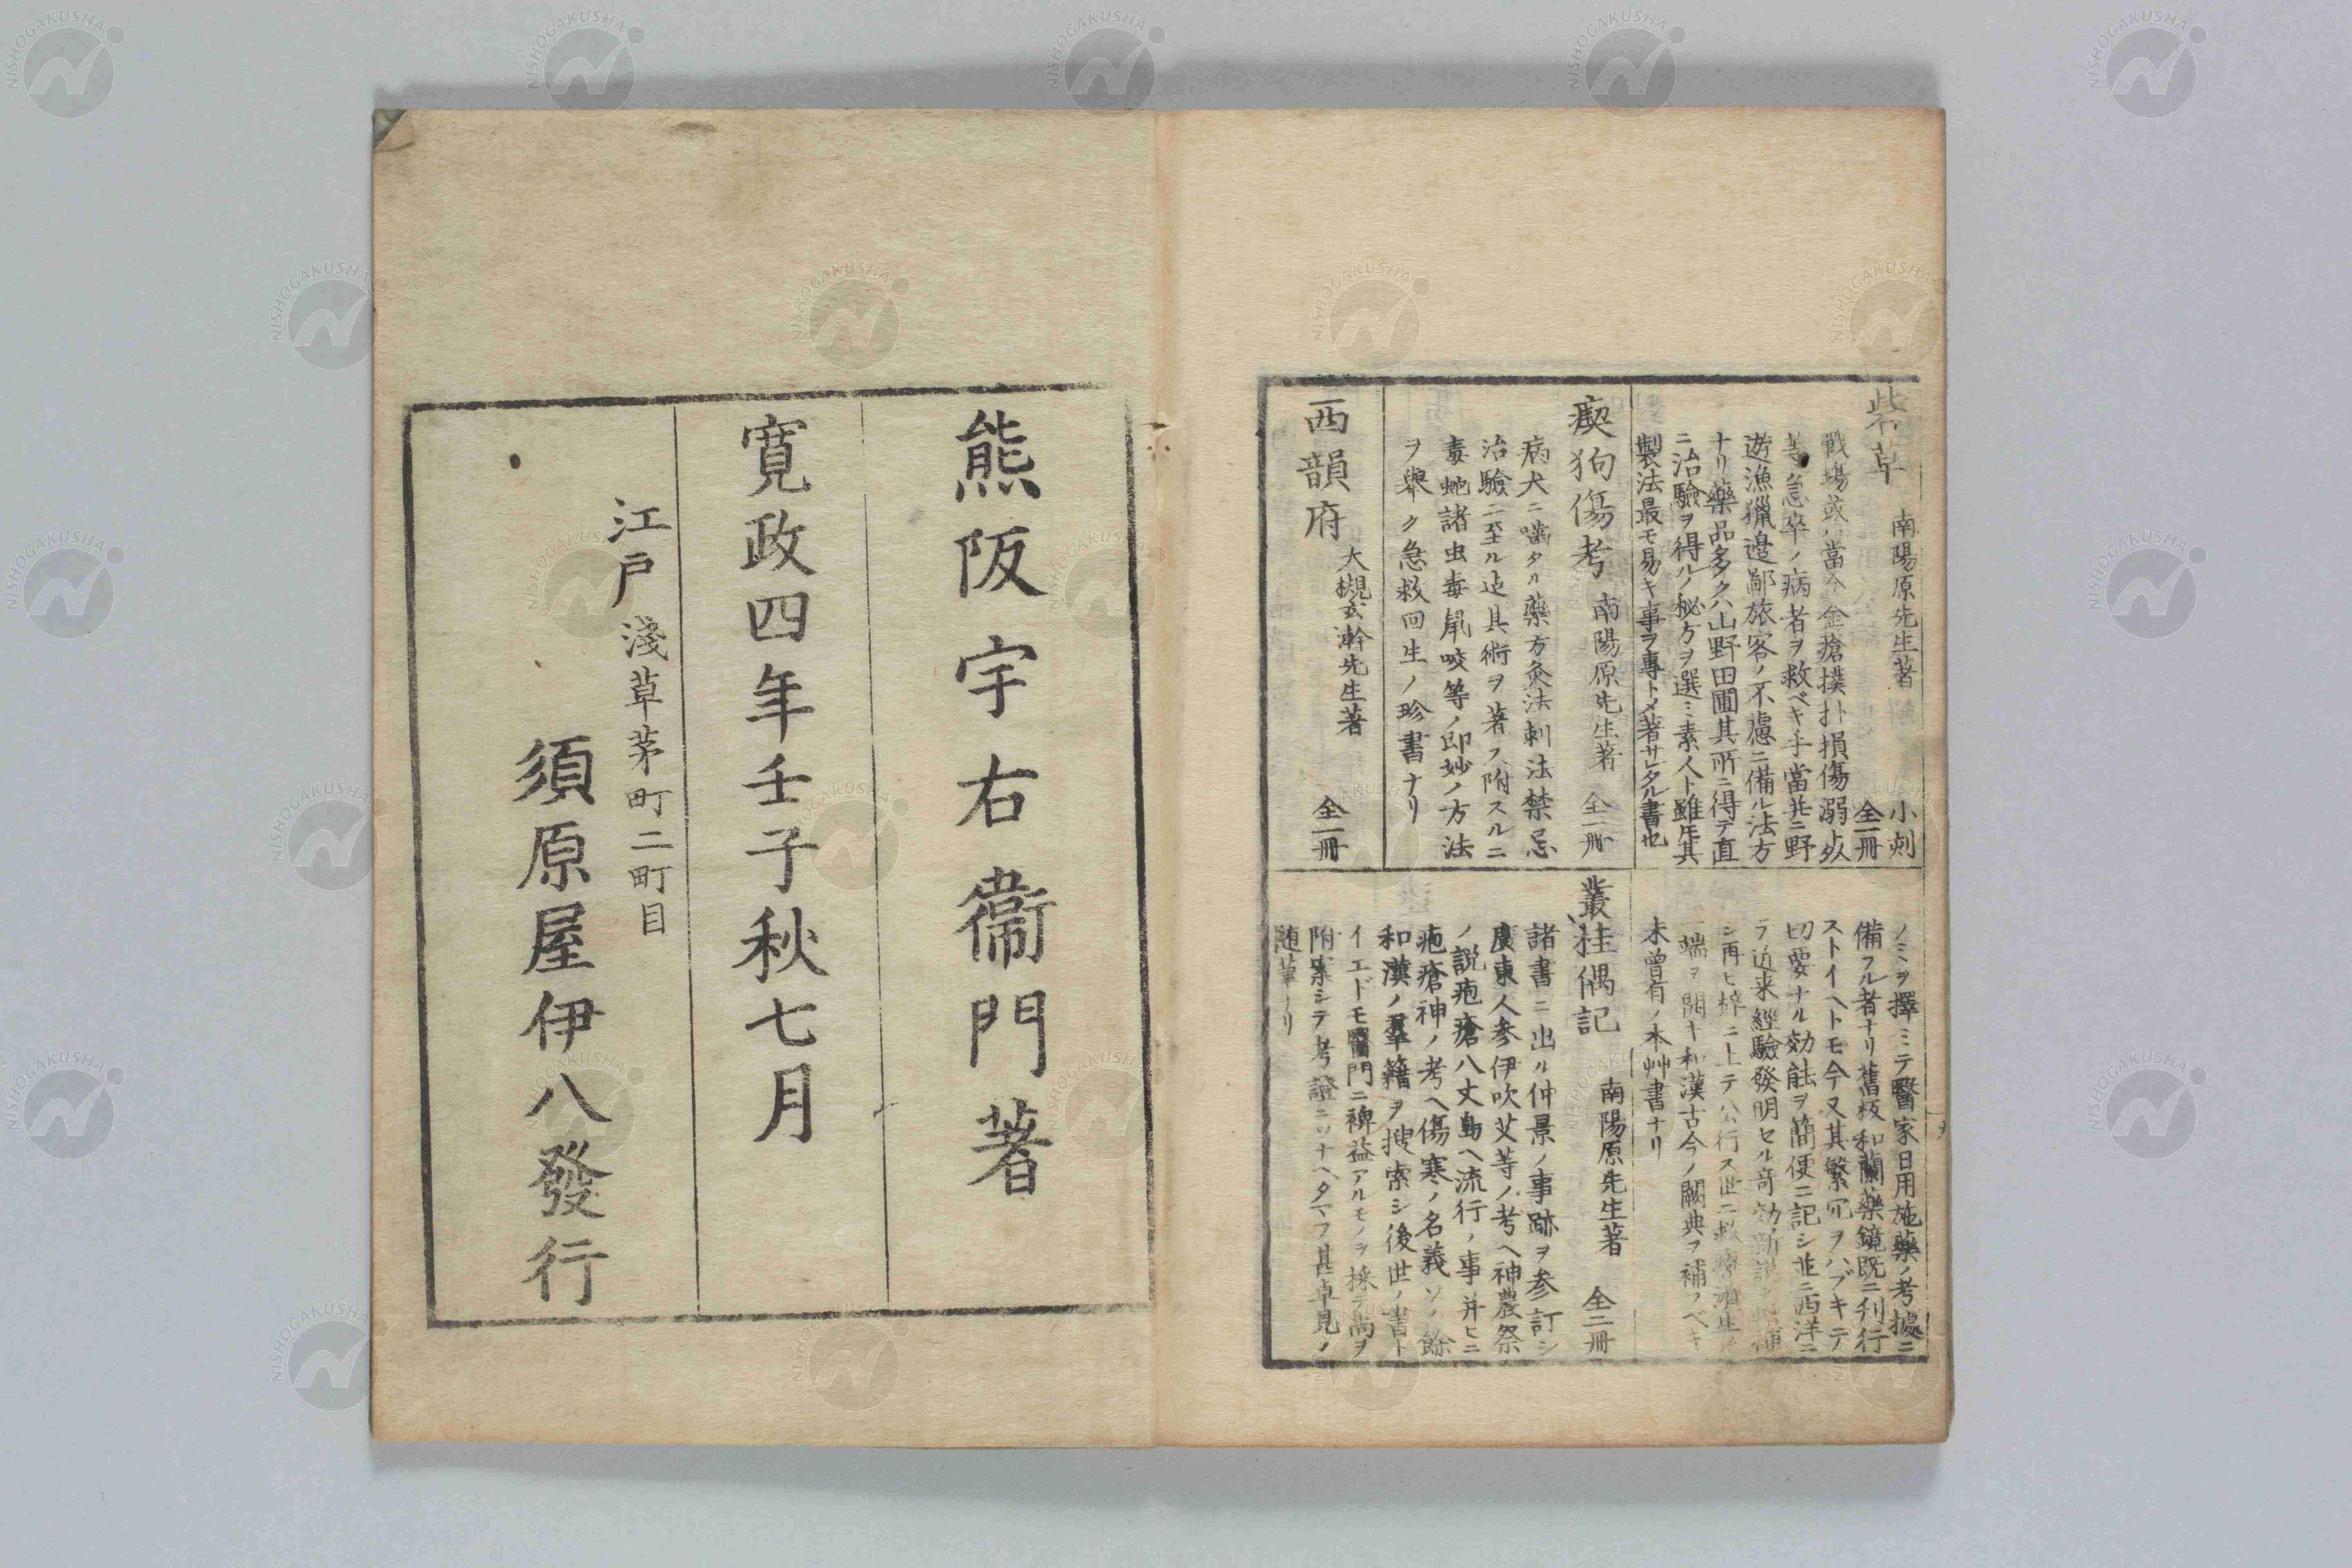 砦草 南陽原先生著 小刻 全一冊
戰塲或ハ當今金瘡撲扑損傷溺死
等急卒ノ病者ヲ救ベキ手當并ニ野
遊漁獵邉鄙旅客ノ不慮ニ備ル法方
ナリ藥品多クハ山野田圃其所ニ得テ直
ニ治驗ヲ得ルノ秘方ヲ選ミ素人ト雖モ其
製法最モ易キ事ヲ專トメ著サレタル書也
瘈狗傷考 南陽原先生著 全一冊
病犬ニ噛タル藥方灸法刺法禁忌
治驗ニ至ル迄其術ヲ著ス附スルニ
毒蛇諸虫毒鼠咬等ノ即妙ノ方法
ヲ舉ク急救回生ノ珍書ナリ
西韻府 大槻玄幹先生著 全一冊
ノミヲ擇ミテ醫家日用施藥ノ考據ニ
備フル者ナリ舊板和蘭藥鏡既ニ刊行
ストイヘトモ今又其繁冗ヲハブキテ
切要ナル効能ヲ簡便ニ記シ並ニ西洋ニ
テ近来經驗發明セル竒効新説
シ再ヒ梓ニ上テ公行ス世ニ救療
一端ヲ開キ和漢古今ノ闕典ヲ補フベキ
未曽有ノ本艸書ナリ
叢桂偶記 南陽原先生著 全二冊
諸書ニ出ル仲景ノ事跡ヲ参訂シ
廣東人参伊吹艾等ノ考ヘ神農祭
ノ説疱瘡八丈島ヘ流行ノ事并ヒニ
疱瘡神ノ考ヘ傷寒ノ名義ソノ餘
和漢ノ羣籍ヲ捜索シ後世ノ書ト
イエドモ醫門ニ裨益アルモノヲ採テ
附案シテ考證ニソナヘタマフ甚卓見ノ
随筆ナリ
熊阪宇右衞門著
寛政四年壬子秋七月
江戸淺草茅町二町目
須原屋伊八發行